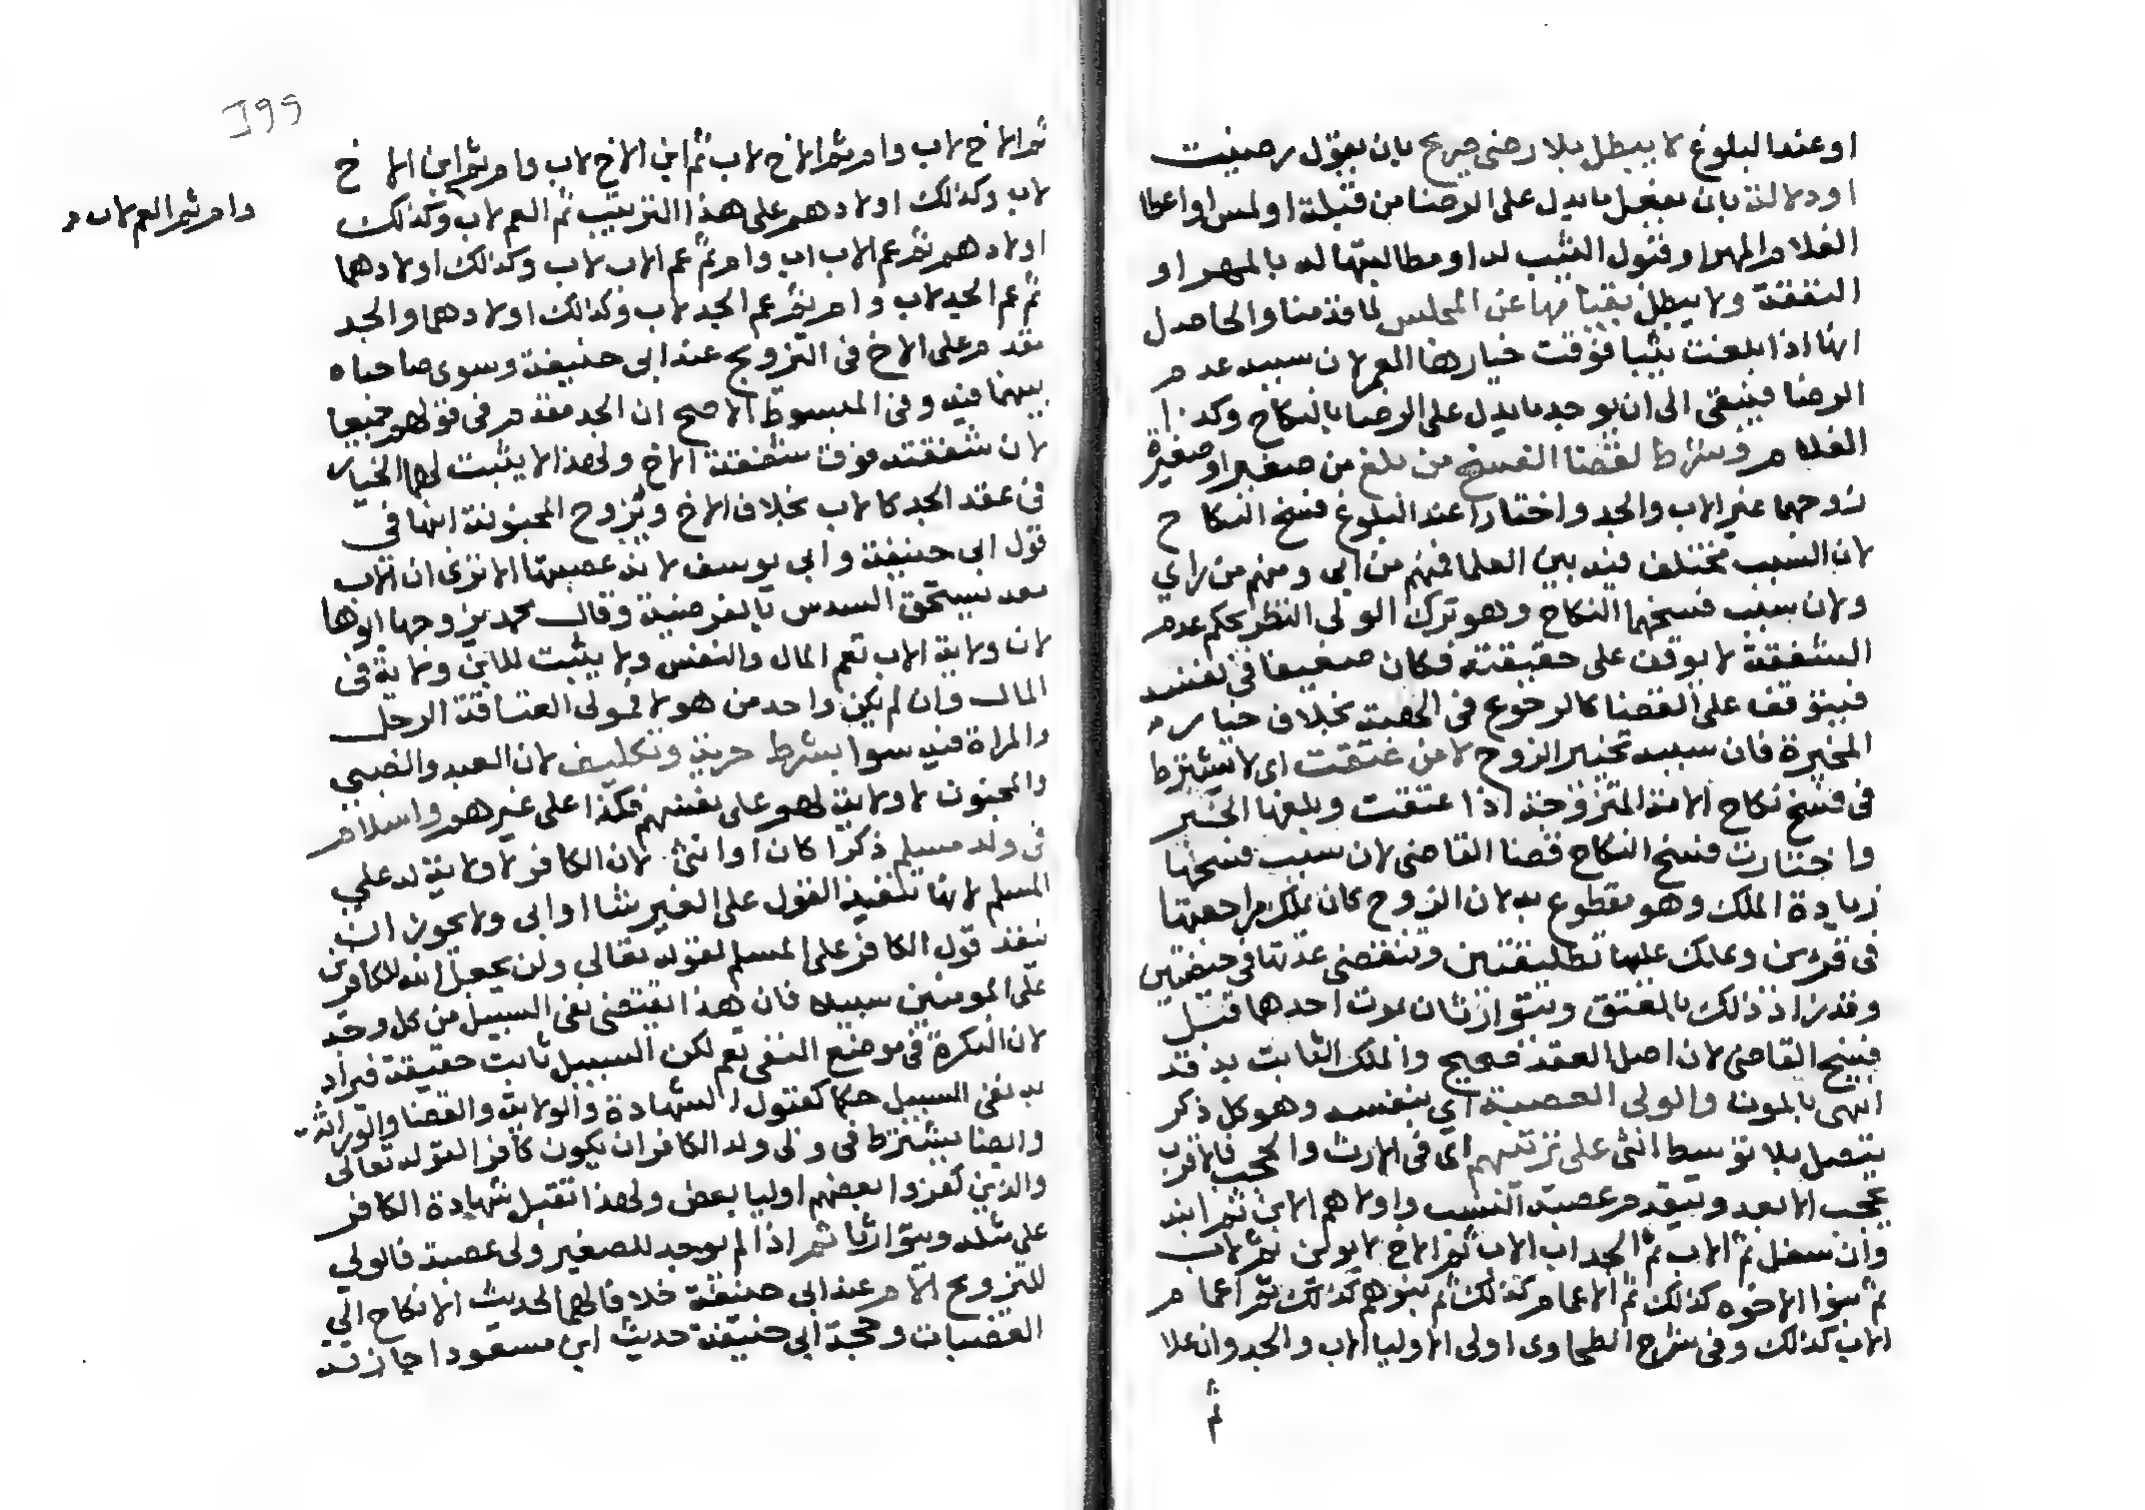 او عند البلوغ لا يبطل بلا رضى صريح بان يقول رضيت
او دلالة بان يفعل ما يدل على الرضا من قبلة او لمس او اعطا
الغلام المهر او قبول الثيب له او مطالبتها له بالمهر او
النفقة ولا يبطل بقيامها عن المجلس لما قدمنا والحاصل
انها اذا بلغت ثيبا فوقت خيارها العمر لان سببه عدم
الرضا فيبقى الى ان يوجد ما يدل على الرضا بالنكاح وكذا
الغلام وشرط لقضا الفسخ من بلغ من صغير او صغيرة
زوجهما غير الاب والجد واختارا عند البلوغ فسخ النكاح
لان السبب مختلف فيه بين العلما فمنهم من ابى ومنهم من راي
ولان سبب فسخهما النكاح وهو ترك الولى النظر بحكم عدم
الشفقة لا يوقف على حقيقته فكان ضعيفا فى نفسه
فيتوقف على القضا كالرجوع فى الهبة بخلاف خيار
المخيرة فان سببه تخيير الزوج لا من عتقت اى لا يشترط
فى فسخ نكاح الامة المتزوجة اذا عتقت وبلغها الخبر
واختارت فسخ النكاح قضا القاضى لان سبب فسخها
زيادة الملك وهو مقطوع به لان الزوج كان يملك مراجعتها
فى قرءين ويملك عليها تطليقتين وتنقضى عدتها فى حيضتين
وقد زاد ذلك بالعتق ويتوارثان بموت احدهما قبل
فسخ القاضى لان اصل العقد صحيح والملك الثابت به قد
انتهى بالموت والولى العصبة اي بنفسه وهو كل ذكر
يتصل بلا توسط انثى على ترتيبهم اى فى الارث والحجب فالاقرب
يحجب الابعد ويتقدم عصبة النسب واولاهم الابن ثم ابنه
وان سفل ثم الاب ثم الجد اب الاب ثم الاخ لابوين ثم لاب
ثم بنوا الاخوه كذلك ثم الاعمام كذلك ثم بنوهم كذلك ثم اعمام
الاب كذلك وفى شرح الطحاوى اولى الاوليا الاب والجد وان علا
ثم
199
ثم الاخ لاب وام ثم الاخ لاب ثم ابن الاخ لاب وام ثم ابن الاخ
لاب وكذلك اولادهم على هذا الترتيب ثم العم لاب وكذلك
وام ثم العم لاب
اولادهم ثم عم الاب اب وام ثم عم الاب لاب وكذلك اولادهما
ثم عم الجد لاب وام ثم عم الجد لاب وكذلك اولادهما والجد
يقدم على الاخ فى التزويج عند ابى حنيفة وسوى صاحباه
بينهما فيه وفى المبسوط الاصح ان الجد مقدم فى قولهم جميعا
لان شفقته فوق شفقة الاخ ولهذا لا يثبت لهما الخيار
فى عقد الجد كالاب بخلاف الاخ ويزوج المجنونة ابنها فى
قول ابى حنيفة وابى يوسف لانه عصبتها الا ترى ان الاب
معه يستحق السدس بالفرضية وقال محمد يزوجها ابوها
لان ولاية الاب تعم المال والنفس ولا يثبت للابن ولاية فى
المال وان لم يكن واحد من هولا فمولى العتاقة الرجل
والمراة فيه سوا بشرط حرية وتكليف لان العبد والصبى
والمجنون لا ولاية لهم على نفسهم فكذا على غيرهم واسلام
فى ولد مسلم ذكرا كان او انثى لان الكافر لا ولاية له علي
المسلم لانها تنفيذ القول على الغير شا او ابى ولا يجوز ان
ينفذ قول الكافر على المسلم لقوله تعالى ولن يجعل الله للكافرين
على المومنين سبيلا فان هذا يقتضى نفى السبيل من كل وجه
لان النكرة فى موضع النفى تعم لكن السبيل ثابت حقيقة فيراد
به نفى السبيل حكما كقبول الشهادة والولاية والقضا والوراثة
وايضا يشترط فى ولى ولد الكافر ان يكون كافرا لقوله تعالى
والذين كفروا بعضهم اوليا بعض ولهذا تقبل شهادة الكافر
على مثله ويتوارثا ثم اذا لم يوجد للصغير ولى عصبة فالولي
للتزويج الام عند ابى حنيفة خلافا لهما لحديث الانكاح الي
العصبات وحجة ابى حنيفة حديث ابن مسعود اجازته